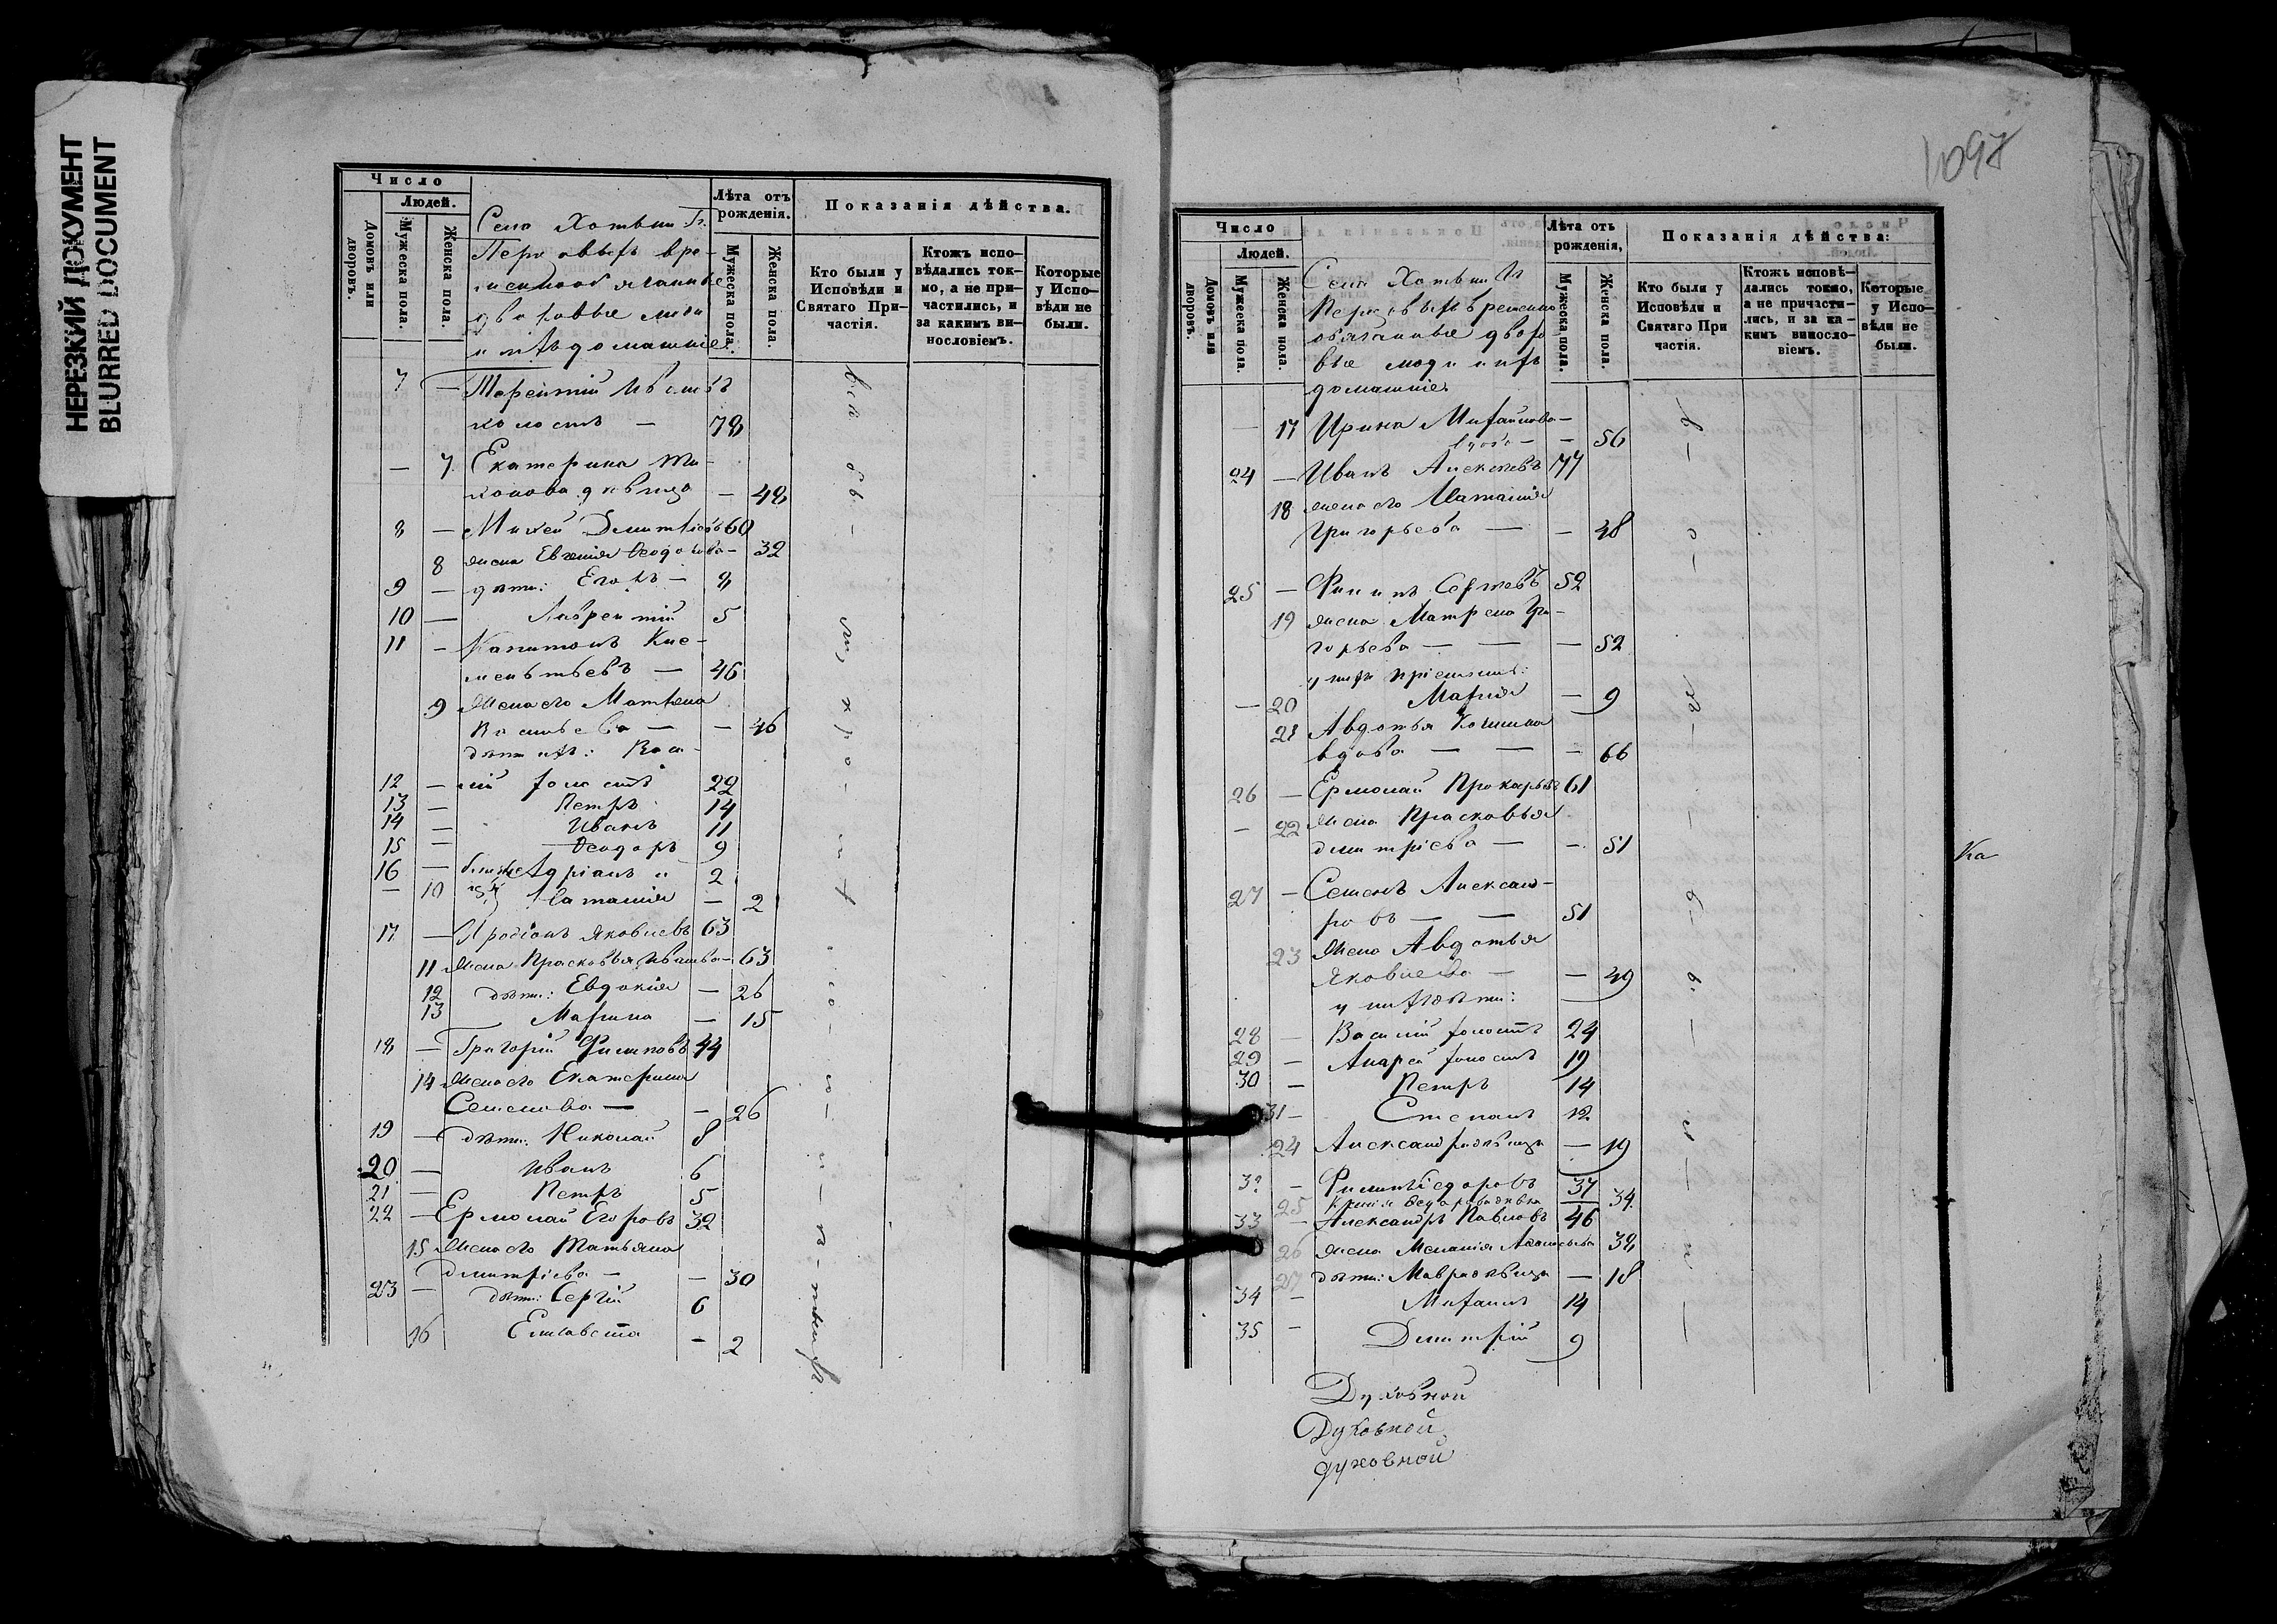 НЕРЕЗКИЙ ДОКУМЕНТ
BLURRED DOCUMENT
Число
Людей.
Домовъ или дворовъ.
Мужеска пола.
Женска пола.
Село Хотьши Гг.
Перховыхъ вре-
меннообязанные
дворовые люди
и ихъ домашніе
Лѣта отъ рожденія.
Мужеска пола.
Женска пола.
Показанія дѣйства.
Кто были у Исповѣди и Святаго При-частія.
Ктожъ испо-вѣдались ток-мо, а не при-частились, и за какимъ ви-нословіемъ.
Которые у Испо-вѣди не были.
7 — Терентій
холостъ — 78
— 7 Екатерина
дѣвица — 48
8 — Михей Дмитріевъ 60
8 жена Евгенія Ѳеодорова — 32
9 — дѣти: Егоръ — 8
10 — Лаврентій 5
11 — Капитонъ Кле-
ментьевъ — 46
9 Жена его Матрена
Васильева — — 46
дѣти ихъ: Васи-
12 — лій холостъ 22
13 — Петръ 14
14 — Иванъ 11
15 — Ѳеодоръ 9
16 — Адріанъ и 2
— 10 Наталія — 2
17 — Иродіонъ Яковлевъ 63
11 Жена Прасковья Иванова — 63
12 дѣти: Евдокія — 26
13 Марина — 15
18 — Григорій Филиповъ 44
14 Жена его Екатерина
Семенова — — 26
19 — дѣти: Николай 8
20 — Иванъ 6
21 — Петръ 5
22 — Ермолай Егоровъ 32
15 Жена его Татьяна
Дмитріева — — 30
23 — дѣти: Сергій 6
16 Елисавета — 2
1097
Число
Людей.
Домовъ или дворовъ.
Мужеска пола.
Женска пола.
Село Хотьши Гг
Перховыхъ временно
обязанные дворо
вые люди и ихъ
домашніе
Лѣта отъ рожденія,
Мужеска пола.
Женска пола.
Показанія дѣйства:
Кто были у Исповѣди и Святаго При частія.
Ктожъ исповѣ-дались токмо, а не причасти-лись, и за ка-кимъ виносло-віемъ.
Которые у Испо-вѣди не были.
— 17 Ирина Михайлова —
вдова — — 56
24 — Иванъ Алексѣевъ 77
18 жена его Наталія
Григорьева — — 48
25 — Филипъ Сергѣевъ 52
19 жена Матрена Гри-
горьева — — — 52
у нихъ пріемышъ:
— 20 Марія — 9
21 Авдотья Козмина
вдова — — — 66
26 — Ермолай Прокарьевъ 61
— 22 Жена Прасковья
Дмитріева — — 51
27 — Семенъ Алексан-
ровъ — — 51
23 Жена Авдотья
Яковлева — — 49
у нихъ дѣти:
28 — Василій холостъ 24
29 — Андрей холостъ 19
30 — Петръ 14
31 — Степанъ 12
24 Александра дѣвица — 19
32 — Филипъ Ѳедоровъ 37
25 Ѳедорова дѣвка 34
33 — Александръ Павловъ 46
26 жена Меланія 38
27 дѣти: Мавра дѣвица — 18
34 — Михаилъ 14
35 — Дмитрій 9
Ка
Духовной
Духовной
духовной